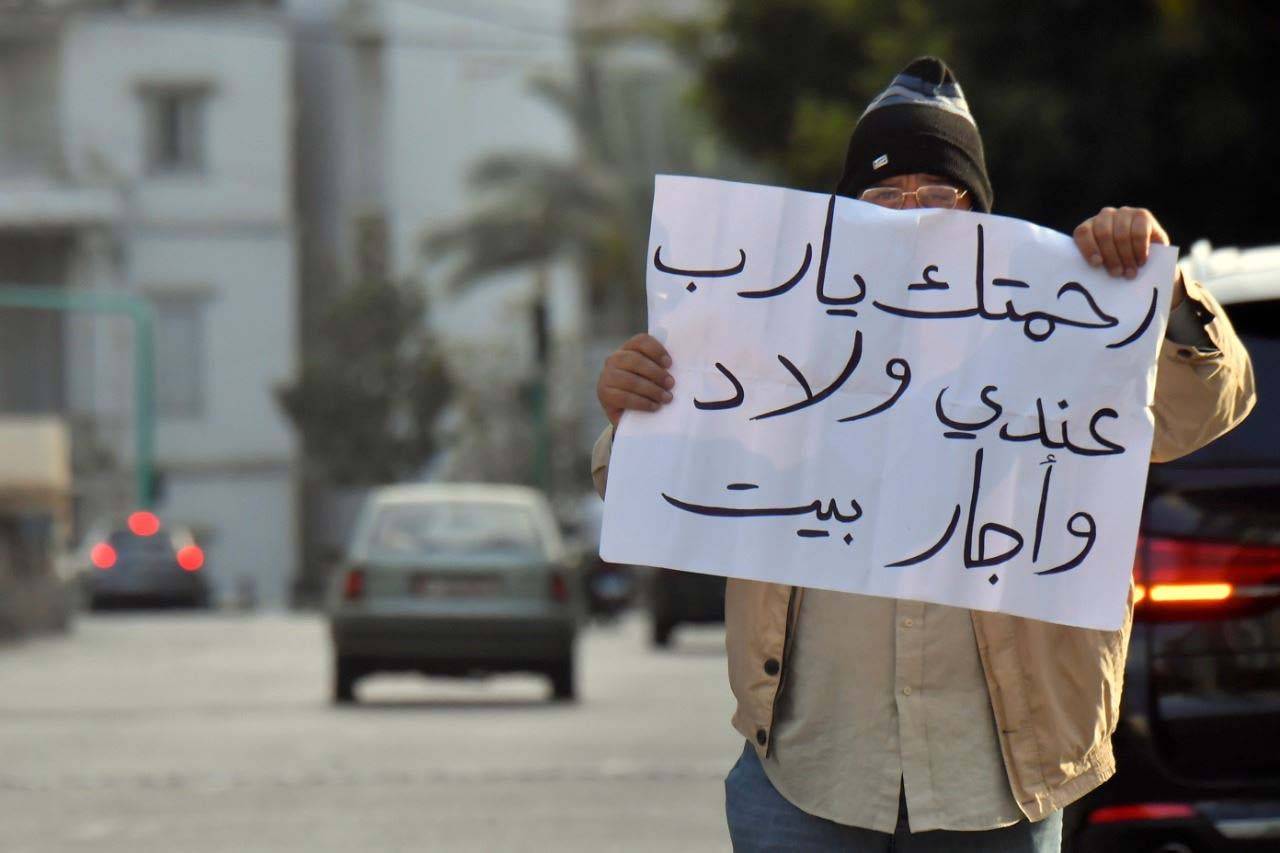 رحمتك يا رب
عندي ولاد
وأجار بيت